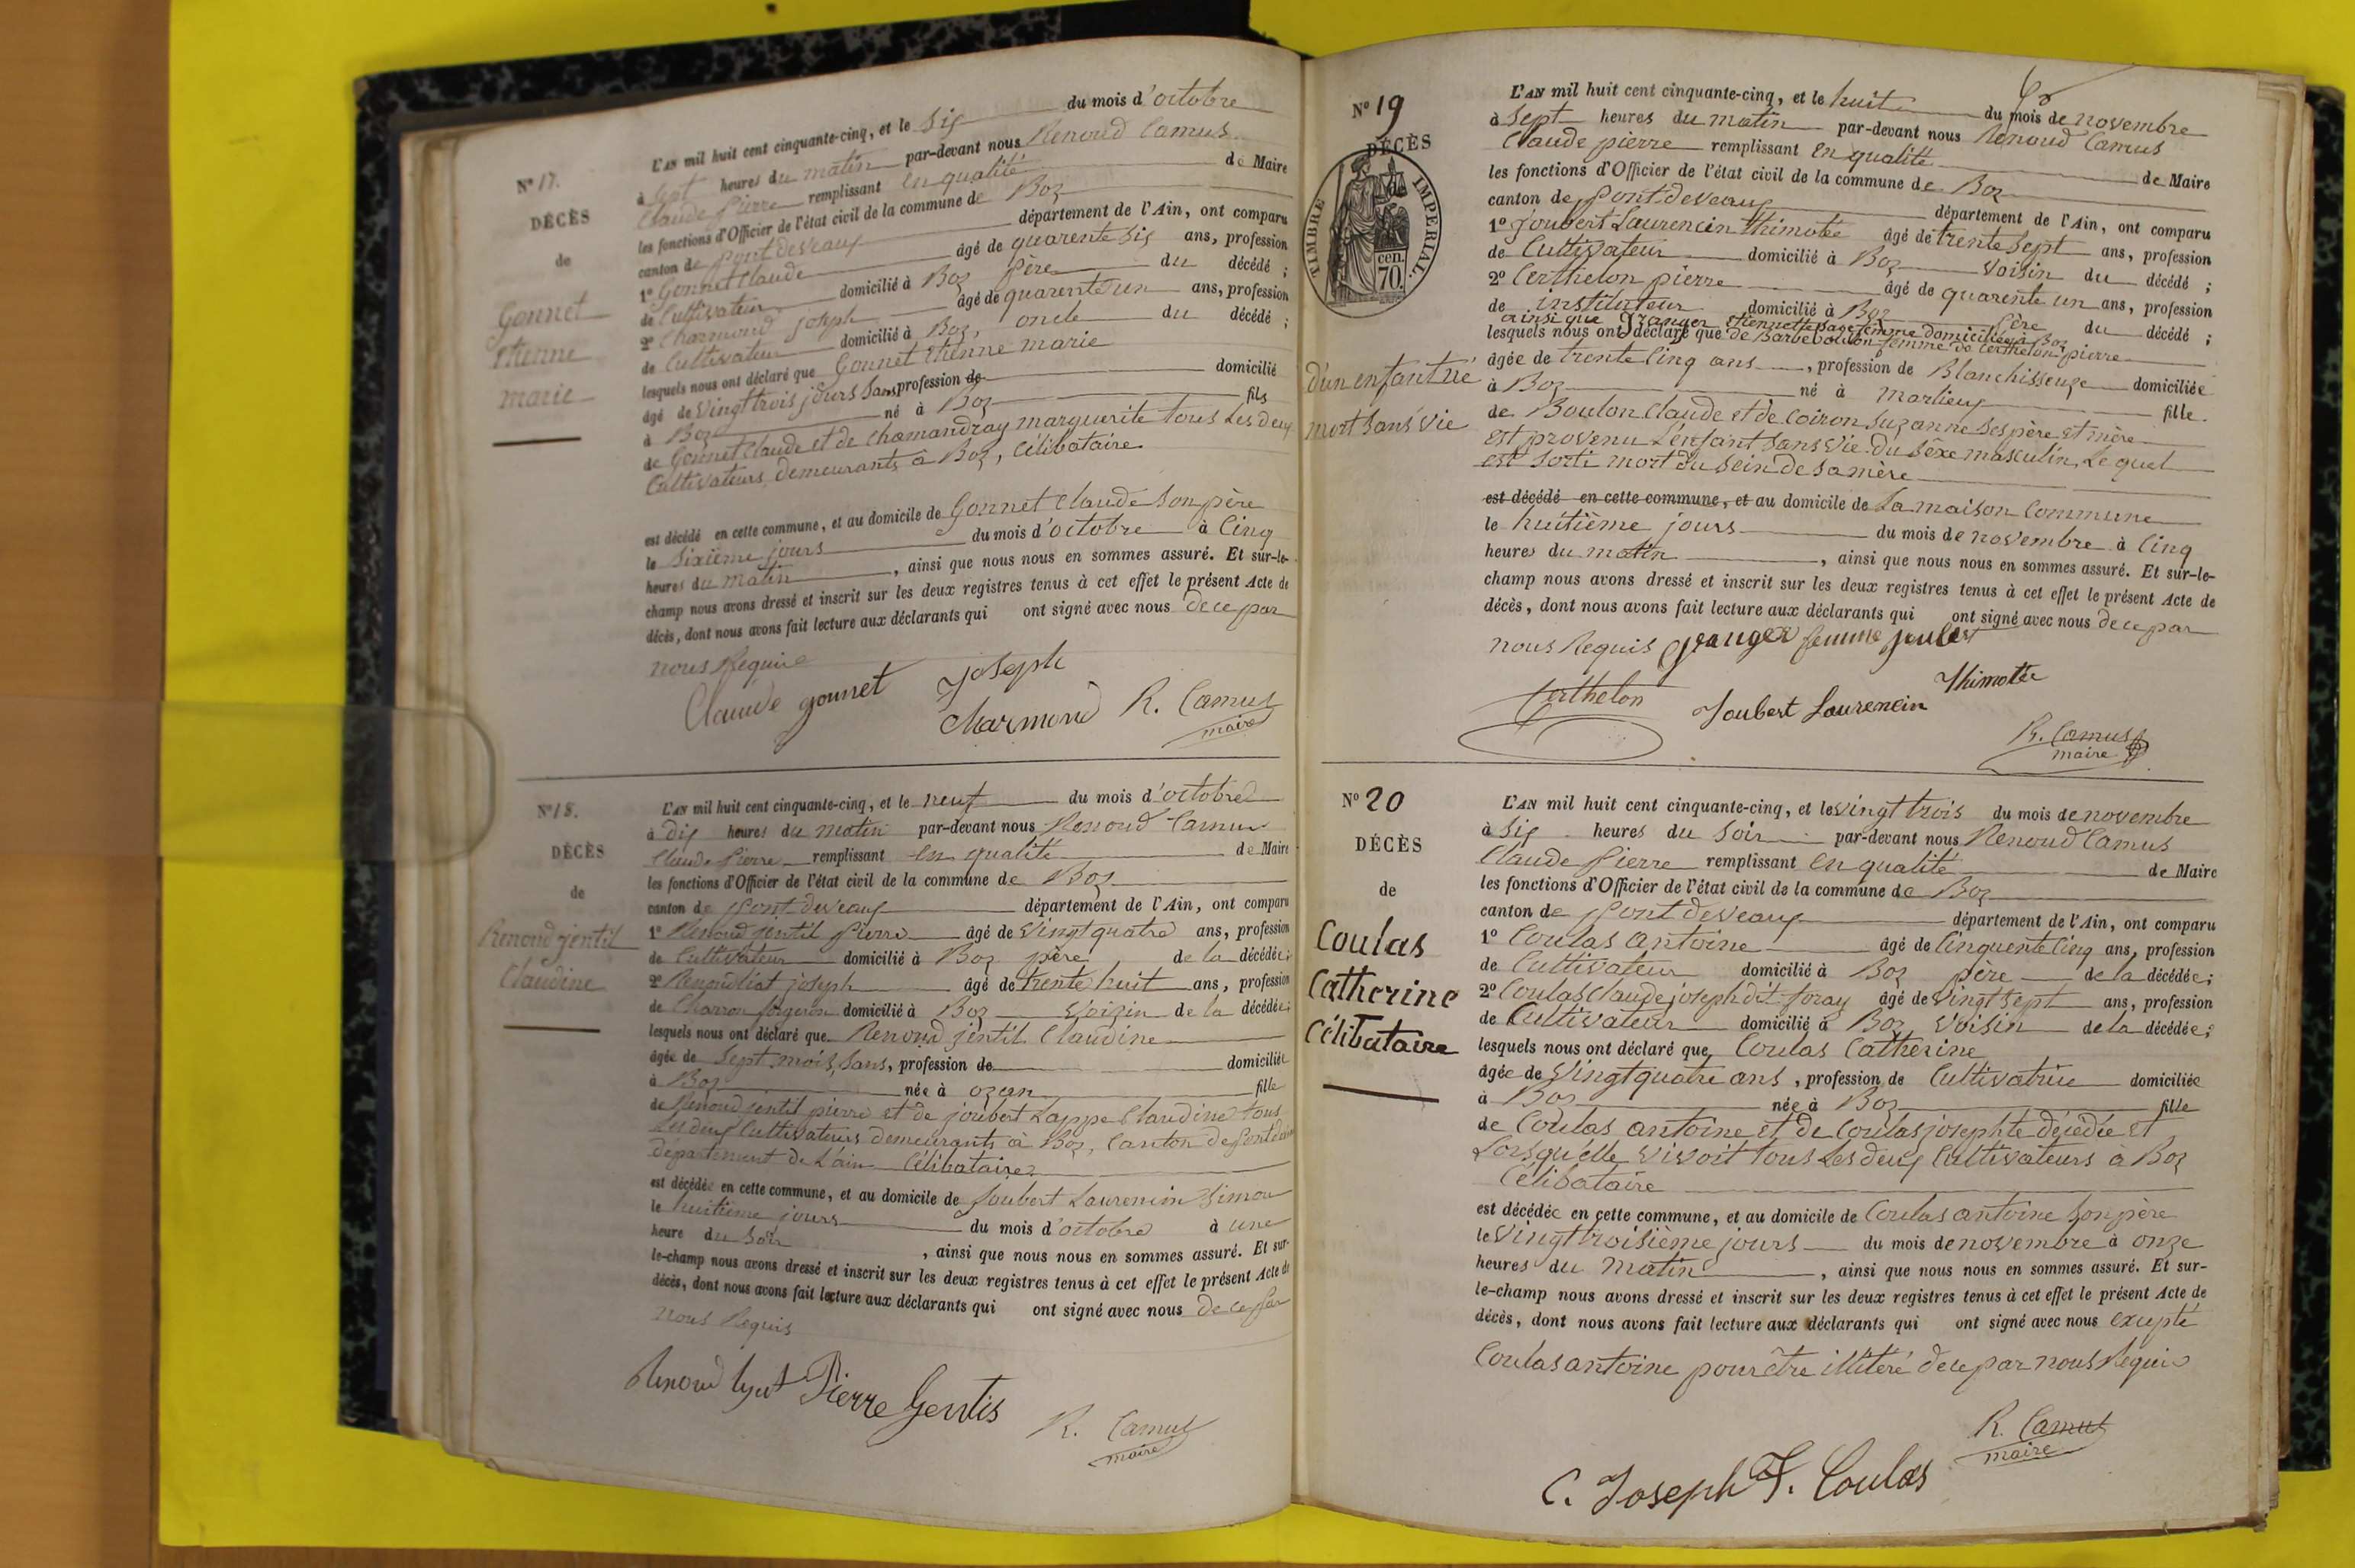 N° 17.
DÉCÈS
de
Gonnet
Etienne
marie
L'AN mil huit cent cinquante-cinq, et le Six du mois d'octobre
à Sept heures du matin par-devant nous Renoud Camus
Claude Pierre remplissant en qualité de Maire
les fonctions d'Officier de l'état civil de la commune de Boz
canton de pont deveaux département de l'Ain, ont comparu
1° Gonnet Claude âgé de quarente six ans, profession
de Cultivateur domicilié à Boz père du décédé ;
2° Charmond joseph âgé de quarente un ans, profession
de Cultivateur domicilié à Boz, oncle du décédé ;
lesquels nous ont déclaré que Gonnet Etienne marie
âgé de vingt trois jours Sans profession de domicilié
à Boz né à Boz fils
de Gonnet Claude et de Chamandray marguerite tous Les deux
Cultivateurs, demeurants à Boz, Célibataire
est décédé en cette commune, et au domicile de Gonnet Claude Son père
le Sixième jours du mois d'octobre à Cinq
heures du matin, ainsi que nous nous en sommes assuré. Et sur-le-
champ nous avons dressé et inscrit sur les deux registres tenus à cet effet le présent Acte de
décès, dont nous avons fait lecture aux déclarants qui ont signé avec nous de ce par
nous Requis
Claude gonnet Joseph
Charmond R. Camus
maire
N° 18.
DÉCÈS
de
Renoud jentil
Claudine
L'AN mil huit cent cinquante-cinq, et le neuf du mois d'octobre
à dix heures du matin par-devant nous Renoud Camus
Claude Pierre remplissant en qualité de Maire
les fonctions d'Officier de l'état civil de la commune de Boz
canton de Pont deveaux département de l'Ain, ont comparu
1° Renoud jentil Pierre âgé de vingt quatre ans, profession
de Cultivateur domicilié à Boz père de la décédée ;
2° Renoud liat joseph âgé de trente huit ans, profession
de Charron forgeron domicilié à Boz Voizin de la décédée ;
lesquels nous ont déclaré que Renoud jentil Claudine
âgée de Sept mois, Sans, profession de domiciliée
à Boz née à ozan fille
de Renoud jentil pierre et de joubert Lappe Claudine tous
Les deux Cultivateurs demeurants à Boz, Canton de Pont de
département de L'ain Célibataire
est décédée en cette commune, et au domicile de Joubert Laurencin Simon
le huitième jours du mois d'octobre à une
heure du Soir, ainsi que nous nous en sommes assuré. Et sur-
le-champ nous avons dressé et inscrit sur les deux registres tenus à cet effet le présent Acte de
décès, dont nous avons fait lecture aux déclarants qui ont signé avec nous de ce par
nous Requis
Renoud Pierre Gentis R. Camus
maire
N° 19
DÉCÈS
de
TIMBRE IMPERIAL.
cen.
70.
d'un enfant né
mort Sans vie
L'AN mil huit cent cinquante-cinq, et le huit du mois de novembre
à Sept heures du matin par-devant nous Renoud Camus
Claude pierre remplissant en qualité de Maire
les fonctions d'Officier de l'état civil de la commune de Boz
canton de Pont-deveaux département de l'Ain, ont comparu
1° Joubert Laurencin thimotée âgé de trente Sept ans, profession
de Cultivateur domicilié à Boz Voisin du décédé ;
2° Certhelon pierre âgé de quarente un ans, profession
de instituteur domicilié à Boz Père du décédé ;
ainsi que Granger Etiennette sage femme domiciliée à Boz
lesquels nous ont déclaré que de Barbe Boulon femme de Certhelon pierre
âgée de trente Cinq ans, profession de Blanchisseuze domiciliée
à Boz né à marlieux fille
de Boulon Claude et de Coiron Suzanne Ses père et mère
est provenu L'enfant Sans vie du Sèxe masculin, Le quel
est Sorti mort du Sein de Sa mère
est décédé en cette commune, et au domicile de La maison Commune
le huitième jours du mois de novembre à Cinq
heures du matin, ainsi que nous nous en sommes assuré. Et sur-le-
champ nous avons dressé et inscrit sur les deux registres tenus à cet effet le présent Acte de
décès, dont nous avons fait lecture aux déclarants qui ont signé avec nous de ce par
nous Requis granger femme joubert
Certhelon Joubert Laurencin Thimotée
R. Camus
maire
N° 20
DÉCÈS
de
Coulas
Catherine
Célibataire
L'AN mil huit cent cinquante-cinq, et le vingt trois du mois de novembre
à Six heures du Soir par-devant nous Renoud Camus
Claude Pierre remplissant en qualité de Maire
les fonctions d'Officier de l'état civil de la commune de Boz
canton de Pont deveaux département de l'Ain, ont comparu
1° Coulas antoine âgé de Cinquente Cinq ans, profession
de Cultivateur domicilié à Boz père de la décédée ;
2° Coulas Claude joseph dit foray âgé de vingt Sept ans, profession
de Cultivateur domicilié à Boz, Voisin de la décédée ;
lesquels nous ont déclaré que Coulas Catherine
âgée de Vingt quatre ans, profession de Cultivatrice domiciliée
à Boz née à Boz fille
de Coulas antoine et de Coulas josephte décédée et
Lorsqu'elle vivoit tous Les deux Cultivateurs à Boz
Célibataire
est décédée en cette commune, et au domicile de Coulas antoine Son père
le Vingt troisième jours du mois de novembre à onze
heures du matin, ainsi que nous nous en sommes assuré. Et sur-
le-champ nous avons dressé et inscrit sur les deux registres tenus à cet effet le présent Acte de
décès, dont nous avons fait lecture aux déclarants qui ont signé avec nous excepté
Coulas antoine pour être illitéré de ce par nous Requis
R. Camus
maire
C. Joseph F. Coulas